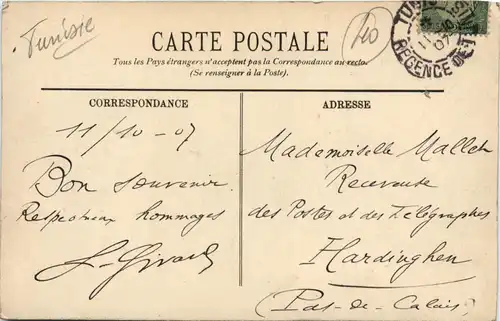 Tunisie
CARTE POSTALE
Tous les Pays étrangers n'acceptent pas la Correspondance au recto.
(Se renseigner à la Poste).
CORRESPONDANCE
11/10-07
Bon souvenir.
Respectueux hommages
L. Girard
ADRESSE
Mademoiselle Mallet
Receveuse
des Postes et des Télégraphes
Hardinghen
(Pas-de-Calais)
TUNIS
REGENCE DE T
07